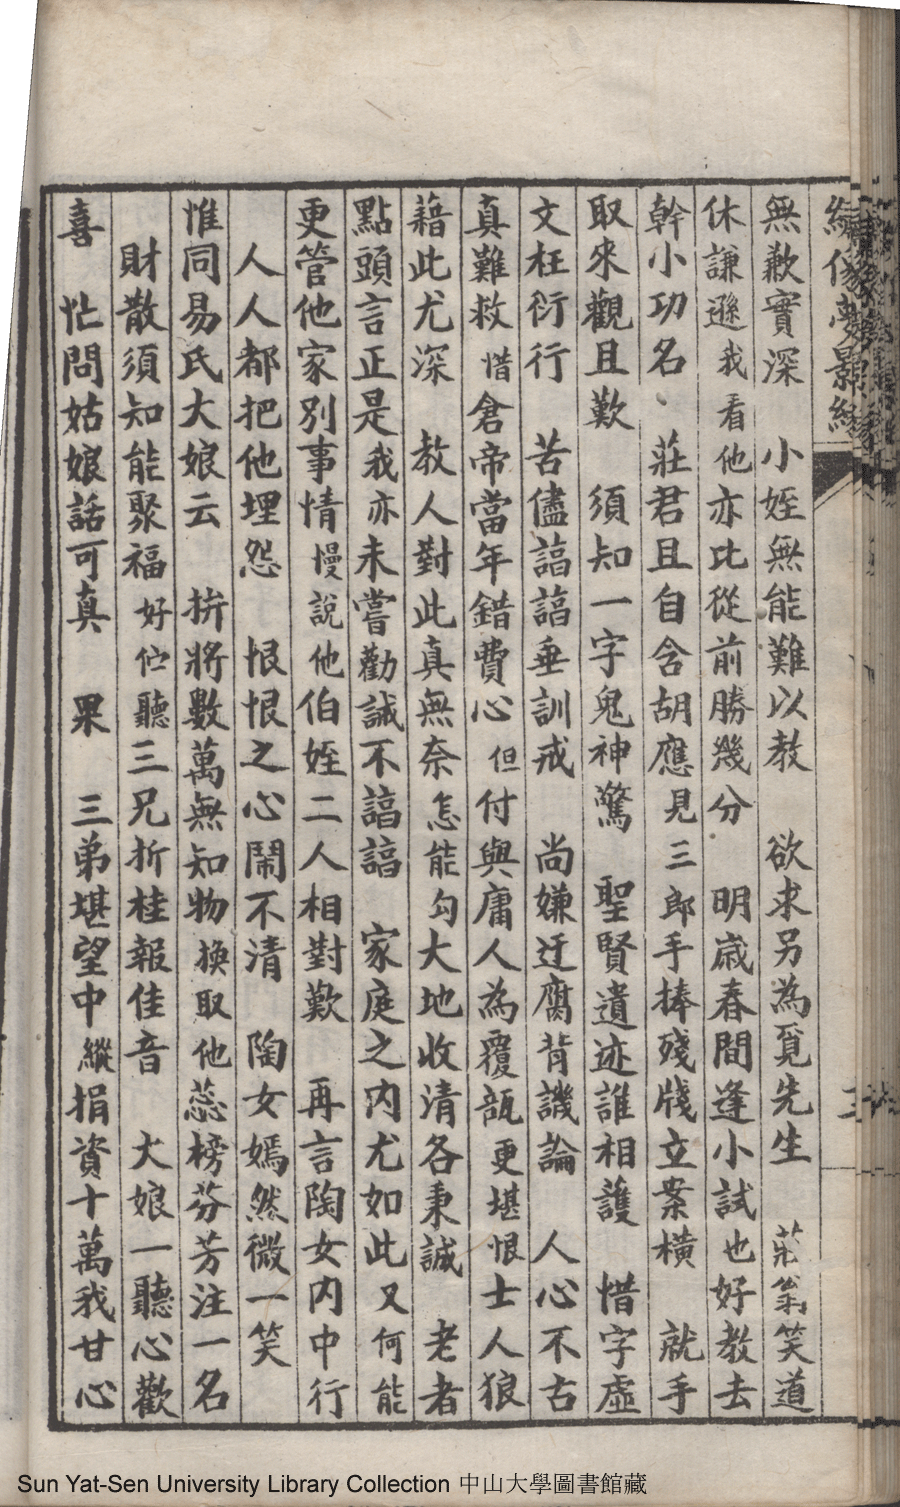 繡像夢影緣
無歉實深　小姪無能難以教　欲求另為覓先生　莊翁笑道
休謙遜我看他亦比從前勝幾分　明歲春間逢小試也好教去
幹小功名　莊君且自含胡應見三郎手捧殘牋立案橫　就手
取來觀且歎　須知一字鬼神驚　聖賢遺迹誰相護　惜字虛
文枉衍行　苦儘諄諄垂訓戒　尚嫌迂腐背譏論　人心不古
真難救惜倉帝當年錯費心但付與庸人為覆瓿更堪恨士人狼
藉此尤深　教人對此真無奈怎能勾大地收清各秉誠　老者
點頭言正是我亦未嘗勸誡不諄諄　家庭之內尤如此又何能
更管他家別事情慢說他伯姪二人相對歎　再言陶女內中行
人人都把他埋怨　恨恨之心鬧不清　陶女嫣然微一笑
惟同易氏大娘云　拚將數萬無知物換取他蕊榜芬芳注一名
財散須知能聚福好佇聽三兄折桂報佳音　大娘一聽心歡
喜　忙問姑娘話可真　果　三弟堪望中縱捐資十萬我甘心
Sun Yat-Sen University Library Collection 中山大學圖書館藏